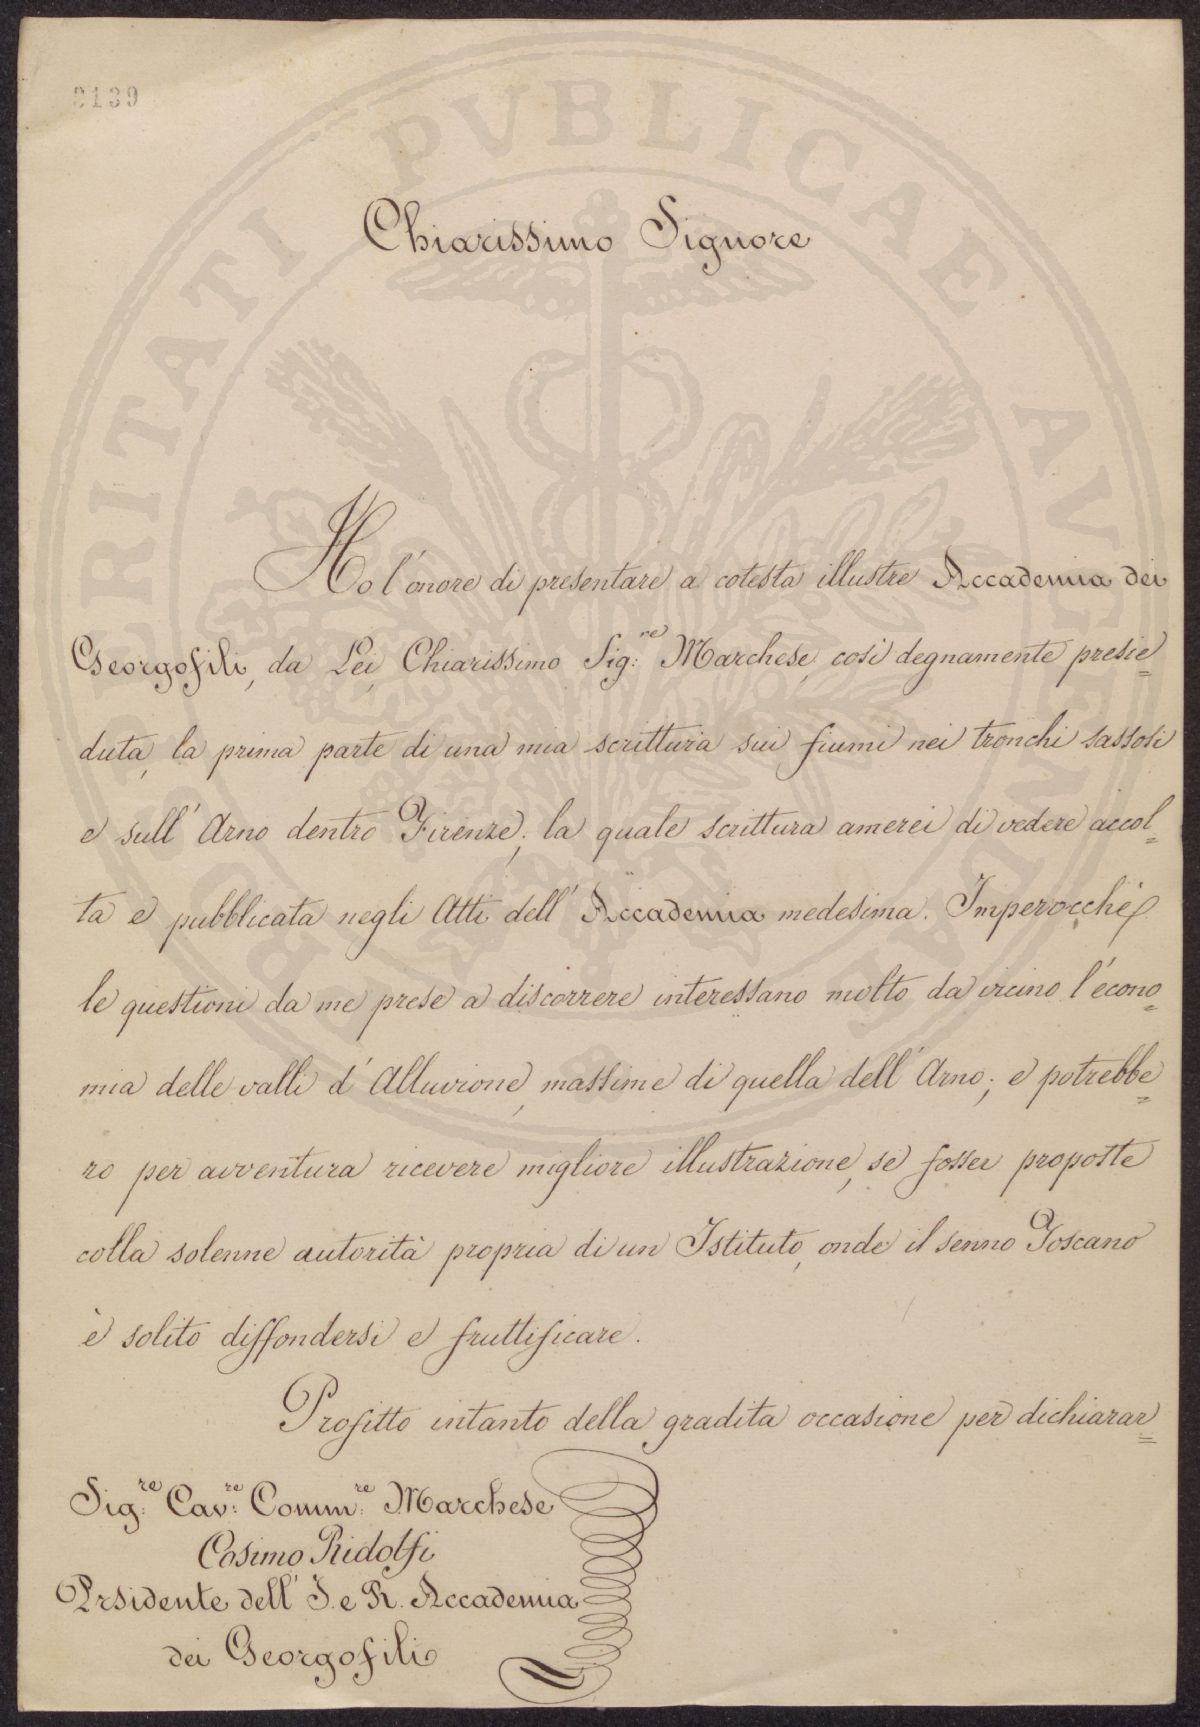 0139
PROSPERITATI PVBLICAE AVGENDAE
Chiarissimo Signore
Ho l'onore di presentare a cotesta illustre Accademia dei
Georgofili, da Lei, Chiarissimo Sig:re Marchese, così degnamente presie=
duta, la prima parte di una mia scrittura sui fiumi nei tronchi sassosi
e sull'Arno dentro Firenze; la quale scrittura amerei di vedere accol=
ta e pubblicata negli Atti dell'Accademia medesima. Imperocchè
le questioni da me prese a discorrere interessano molto da vicino l'econo=
mia delle valli d'Alluvione, massime di quella dell'Arno; e potrebbe=
ro per avventura ricevere migliore illustrazione, se fosser proposte
colla solenne autorità propria di un Istituto, onde il senno Toscano
è solito diffondersi e fruttificare.
Profitto intanto della gradita occasione per dichiarar=
Sig:re Cav:re Comm:re Marchese
Cosimo Ridolfi
Prsidente dell'I. e R. Accademia
dei Georgofili